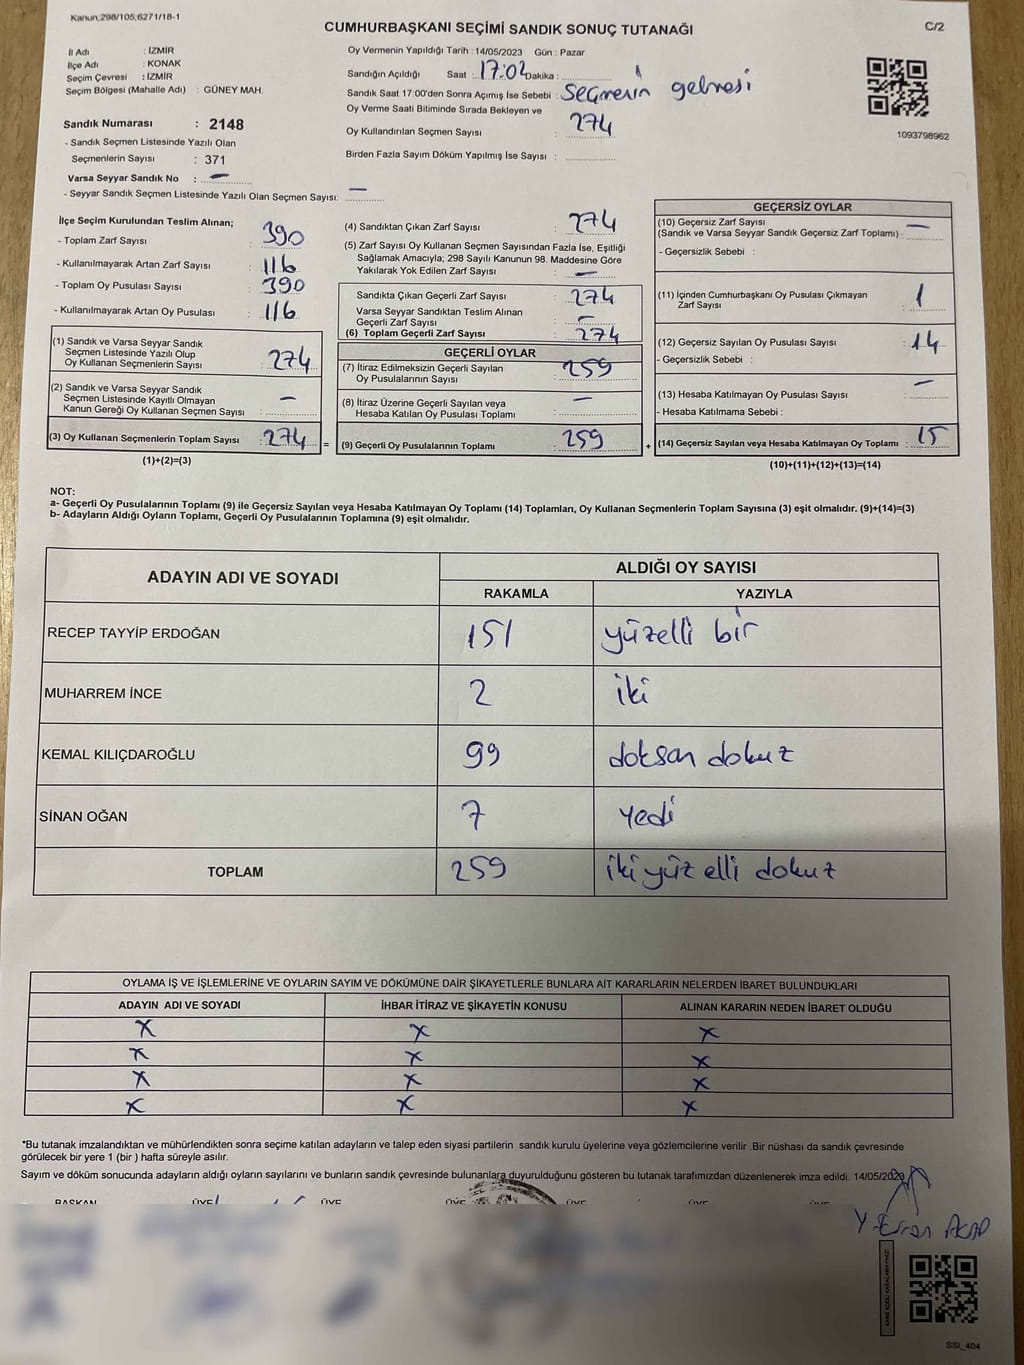 Kanun,298/105,6271/18-1
CUMHURBAŞKANI SEÇİMİ SANDIK SONUÇ TUTANAĞI
C/2
İl Adı : İZMİR
İlçe Adı : KONAK
Seçim Çevresi : İZMİR
Seçim Bölgesi (Mahalle Adı) : GÜNEY MAH.
Sandık Numarası : 2148
- Sandık Seçmen Listesinde Yazılı Olan
Seçmenlerin Sayısı : 371
Varsa Seyyar Sandık No : —
- Seyyar Sandık Seçmen Listesinde Yazılı Olan Seçmen Sayısı: —
Oy Vermenin Yapıldığı Tarih : 14/05/2023 Gün : Pazar
Sandığın Açıldığı Saat : 17:02 Dakika :
Sandık Saat 17:00'den Sonra Açımış İse Sebebi : Seçmenin gelmesi
Oy Verme Saati Bitiminde Sırada Bekleyen ve
Oy Kullandırılan Seçmen Sayısı : 274
Birden Fazla Sayım Döküm Yapılmış İse Sayısı :
1093798962
İlçe Seçim Kurulundan Teslim Alınan;
- Toplam Zarf Sayısı : 390
- Kullanılmayarak Artan Zarf Sayısı : 116
- Toplam Oy Pusulası Sayısı : 390
- Kullanılmayarak Artan Oy Pusulası : 116
(1) Sandık ve Varsa Seyyar Sandık
Seçmen Listesinde Yazılı Olup
Oy Kullanan Seçmenlerin Sayısı : 274
(2) Sandık ve Varsa Seyyar Sandık
Seçmen Listesinde Kayıtlı Olmayan
Kanun Gereği Oy Kullanan Seçmen Sayısı : —
(3) Oy Kullanan Seçmenlerin Toplam Sayısı : 274 =
(1)+(2)=(3)
(4) Sandıktan Çıkan Zarf Sayısı : 274
(5) Zarf Sayısı Oy Kullanan Seçmen Sayısından Fazla İse, Eşitliği
Sağlamak Amacıyla; 298 Sayılı Kanunun 98. Maddesine Göre
Yakılarak Yok Edilen Zarf Sayısı : —
Sandıkta Çıkan Geçerli Zarf Sayısı : 274
Varsa Seyyar Sandıktan Teslim Alınan
Geçerli Zarf Sayısı : —
(6) Toplam Geçerli Zarf Sayısı : 274
GEÇERLİ OYLAR
(7) İtiraz Edilmeksizin Geçerli Sayılan
Oy Pusulalarının Sayısı : 259
(8) İtiraz Üzerine Geçerli Sayılan veya
Hesaba Katılan Oy Pusulası Toplamı : —
(9) Geçerli Oy Pusulalarının Toplamı : 259 +
GEÇERSİZ OYLAR
(10) Geçersiz Zarf Sayısı
(Sandık ve Varsa Seyyar Sandık Geçersiz Zarf Toplamı) : —
- Geçersizlik Sebebi :
(11) İçinden Cumhurbaşkanı Oy Pusulası Çıkmayan
Zarf Sayısı : 1
(12) Geçersiz Sayılan Oy Pusulası Sayısı : 14
- Geçersizlik Sebebi :
(13) Hesaba Katılmayan Oy Pusulası Sayısı : —
- Hesaba Katılmama Sebebi :
(14) Geçersiz Sayılan veya Hesaba Katılmayan Oy Toplamı : 15
(10)+(11)+(12)+(13)=(14)
NOT:
a- Geçerli Oy Pusulalarının Toplamı (9) ile Geçersiz Sayılan veya Hesaba Katılmayan Oy Toplamı (14) Toplamları, Oy Kullanan Seçmenlerin Toplam Sayısına (3) eşit olmalıdır. (9)+(14)=(3)
b- Adayların Aldığı Oyların Toplamı, Geçerli Oy Pusulalarının Toplamına (9) eşit olmalıdır.
ADAYIN ADI VE SOYADI
ALDIĞI OY SAYISI
RAKAMLA YAZIYLA
RECEP TAYYİP ERDOĞAN 151 yüzelli bir
MUHARREM İNCE 2 iki
KEMAL KILIÇDAROĞLU 99 doksan dokuz
SİNAN OĞAN 7 yedi
TOPLAM 259 ikiyüz elli dokuz
OYLAMA İŞ VE İŞLEMLERİNE VE OYLARIN SAYIM VE DÖKÜMÜNE DAİR ŞİKAYETLERLE BUNLARA AİT KARARLARIN NELERDEN İBARET BULUNDUKLARI
ADAYIN ADI VE SOYADI İHBAR İTİRAZ VE ŞİKAYETİN KONUSU ALINAN KARARIN NEDEN İBARET OLDUĞU
x x x
x x x
x x x
x x x
*Bu tutanak imzalandıktan ve mühürlendikten sonra seçime katılan adayların ve talep eden siyasi partilerin sandık kurulu üyelerine veya gözlemcilerine verilir. Bir nüshası da sandık çevresinde
görülecek bir yere 1 (bir ) hafta süreyle asılır.
Sayım ve döküm sonucunda adayların aldığı oyların sayılarını ve bunların sandık çevresinde bulunanlara duyurulduğunu gösteren bu tutanak tarafımızdan düzenlenerek imza edildi. 14/05/2023
BAŞKAN ÜYE ÜYE ÜYE ÜYE ÜYE ÜYE
SSI_404